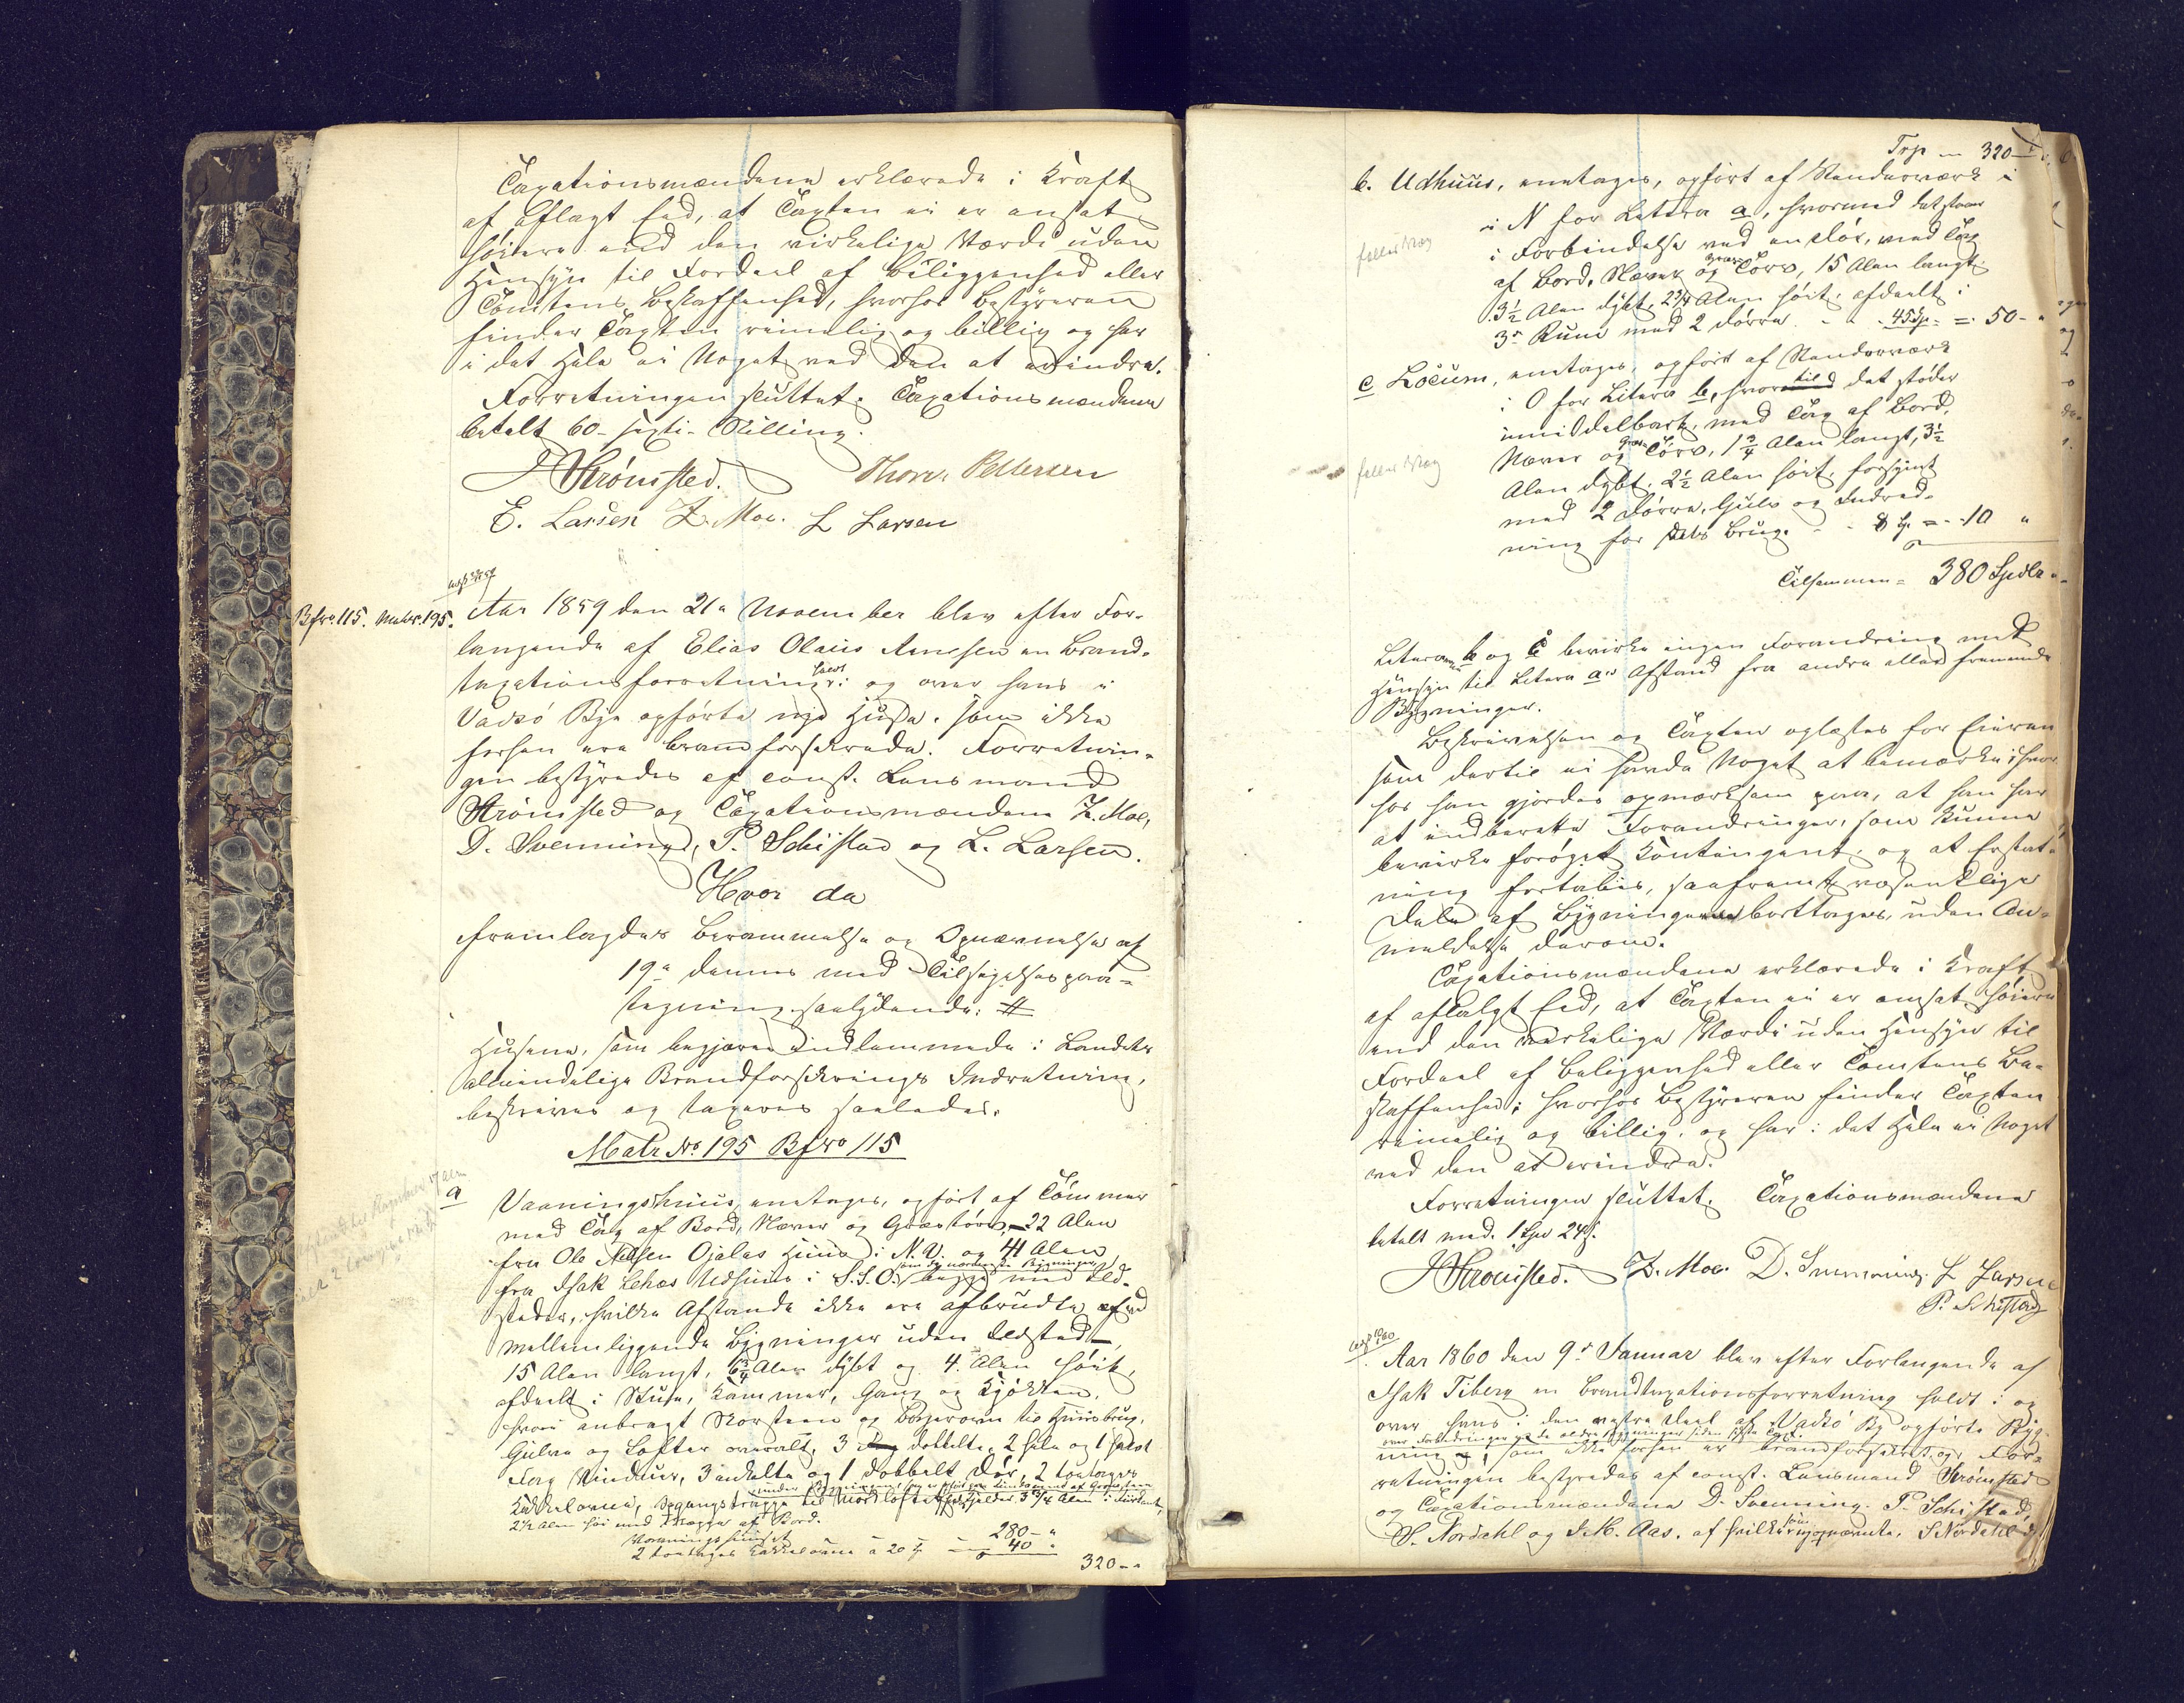 Taxationsmændene erklærede i Kraft
af aflagt Eed, at Taxten ei er ansat
høiere end den virkelige Værdi uden
Hensyn til Fordeel af Beliggenhed eller
Tomtens Beskaffenhed, hvorhos Bestyreren
finder Taxten rimelig og billig og har
i det Hele ei Noget ved den at erindre.
Forretningen sluttet. Taxationsmændene
betalt 60 - sexti - Skilling.
Strömsted. Thorv. Pettersen
E. Larsen Z. Moe. L Larsen
Bfno. 115. Matr. 195.
Aar 1859 den 21de November blev efter For-
langende af Elias Olaus Arnesen en Brand-
taxationsforretning holdt i og over hans i
Vadsö Bye opförte nye Huse, som ikke
forhen ere brandforsikrede. Forretnin-
gen bestyredes af const. Lensmand
Strömsted og Taxationsmændene Z. Moe,
D. Svenning, P. Schistad og L. Larsen.
Hvor da
fremlagdes Berammelse og Opnævnelse af
19de dennes med Tilsigelsespaa-
tegning saalydende: #
Husene, som begjæres indlemmede i Landets
almindelige Brandforsikrings Indretning,
beskrives og taxeres saaledes.
Matr No 195 Bfno 115
a Vaaningshuus, eenetages, opfört af Tömmer
med Tag af Bord, Næver og Græstörv, 22 Alen
fra Ole Nilsen Ojalas Huus i N.V. og 41 Alen
som de nærmeste Bygninger
fra Isak Lehos Udhuus i S.S.O. begge med Ild-
steder, hvilke Afstande ikke ere afbrudte af
mellemliggende Bygninger uden Ildsted,
15 Alen langt, 6¾ Alen dybt og 4 Alen höit,
afdeelt i Stue, Kammer, Gang og Kjökken,
hvori anbragt Skorsteen og Bagerovn til Huusbrug,
Gulve og Lofter overalt, 3 dobbelte, 2 hele og 1 halvt
Fag Vinduer, 3 enkelte og 1 dobbelt Dör, 2 toetages
Kakkelovne, Opgangstrappe til Mörkloftet, Kjelder 3¾ Alen i Fiirkant,
2½ Alen höi med Vægge af Bord.
Vaaningshuset 280 - "
2 toetages Kakkelovne a 20 Sp 40 "
320 - "
Trp 320 - "
b. Udhuus, eenetages, opfört af Stenderværk
i N for Litera a, hvormed det staar
i Forbindelse ved en Dör, med Tag
af Bord, Næver og Græs Törv, 15 Alen langt
3½ Alen dybt, 2¾ Alen höit, afdeelt i
3de Rum med 2 Dörre - - 45 Sp. = 50 - "
c Locum, eenetages, opfört af Stenderværk
i O for Litera b, hvortil det stöder
umiddelbart, med Tag af Bord,
Næver og Græs Törv, 1¾ Alen langt, 3½
Alen dybt, 2½ Alen höit, forsynt
med 2 Dörre, Gulv og Indred-
ning for dets Brug. - 8 Sp. = - 10 "
Tilsammen = 380 Spdlr
Litera b og c bevirke ingen Forandring med
Hensyn til Litera as Afstand fra andre eller fremmede
Bygninger.
Beskrivelsen og Taxten oplæstes for Eieren
som dertil ei havde Noget at bemærke; hvor-
hos han gjordes opmærksom paa, at han har
at indberette Forandringer, som kunne
bevirke foröget Contingent, og at Erstat-
ning fortabes, saafremt væsentlige
Dele af Bygningerne borttages, uden An-
meldelse derom.
Taxationsmændene erklærede i Kraft
af aflagt Eed, at Taxten ei er ansat höiere
end den virkelige Værdi uden Hensyn til
Fordeel af Beliggenhed eller Tomtens Be-
skaffenhed; hvorhos Bestyreren finder Taxten
rimelig og billig, og har i det Hele ei Noget
ved den at erindre.
Forretningen sluttet. Taxationsmændene
betalt med 1 Spd 24 s.
Strömsted. Z. Moe. D. Svenning. L Larsen
P. Schistad
Aar 1860 den 9de Januar blev efter Forlangende af
Isak Tiberg en Brandtaxationsforretning holdt i og
over hans i den vestre Deel af Vadsö By opförte Byg-
over Forbedringer paa de ældre Bygninger siden sidste Taxt
ning, som ikke forhen er brandforsikret og For-
retningen bestyredes af const. Lensmand Strömsted
og Taxationsmændene D. Svenning, P. Schistad,
S. Nordahl og I. M. Aas, af hvilke som nyopnævnte, S Nordahl